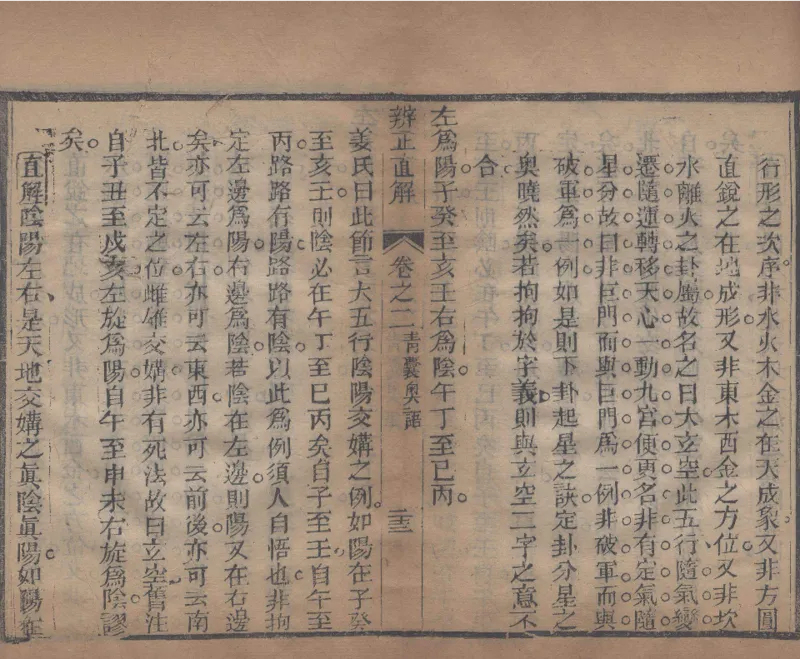 行形之次序非水火木金之在天成象又非方圓
直銳之在地成形又非東木西金之方位又非坎
水離火之卦屬故名之曰大玄空此五行隨氣變
遷隨運轉移天心一動九宮便更名非有定氣隨
星分故曰非巨門而與巨門為一例非破軍而與
破軍為一例如是則下卦起星之訣定卦分星之
奧曉然矣若拘拘於字義則與立空二字之意不
合
左為陽子癸至亥壬右為陰午丁至巳丙
辨正直解 卷之二 青囊奧語 二三
姜氏曰此節言大五行陰陽交媾之例如陽在子癸
至亥壬則陰必在午丁至巳丙矣自子至壬自午至
丙路路有陽路路有陰以此為例須人自悟也非拘
定左邊為陽右邊為陰若陰在左邊則陽又在右邊
矣亦可云左右亦可云東西亦可云前後亦可云南
北皆不定之位雌雄交媾非有死法故曰立空舊注
自子丑至戌亥左旋為陽自午至申未右旋為陰謬
矣
直解陰陽左右是天地交媾之眞陰眞陽如陽在